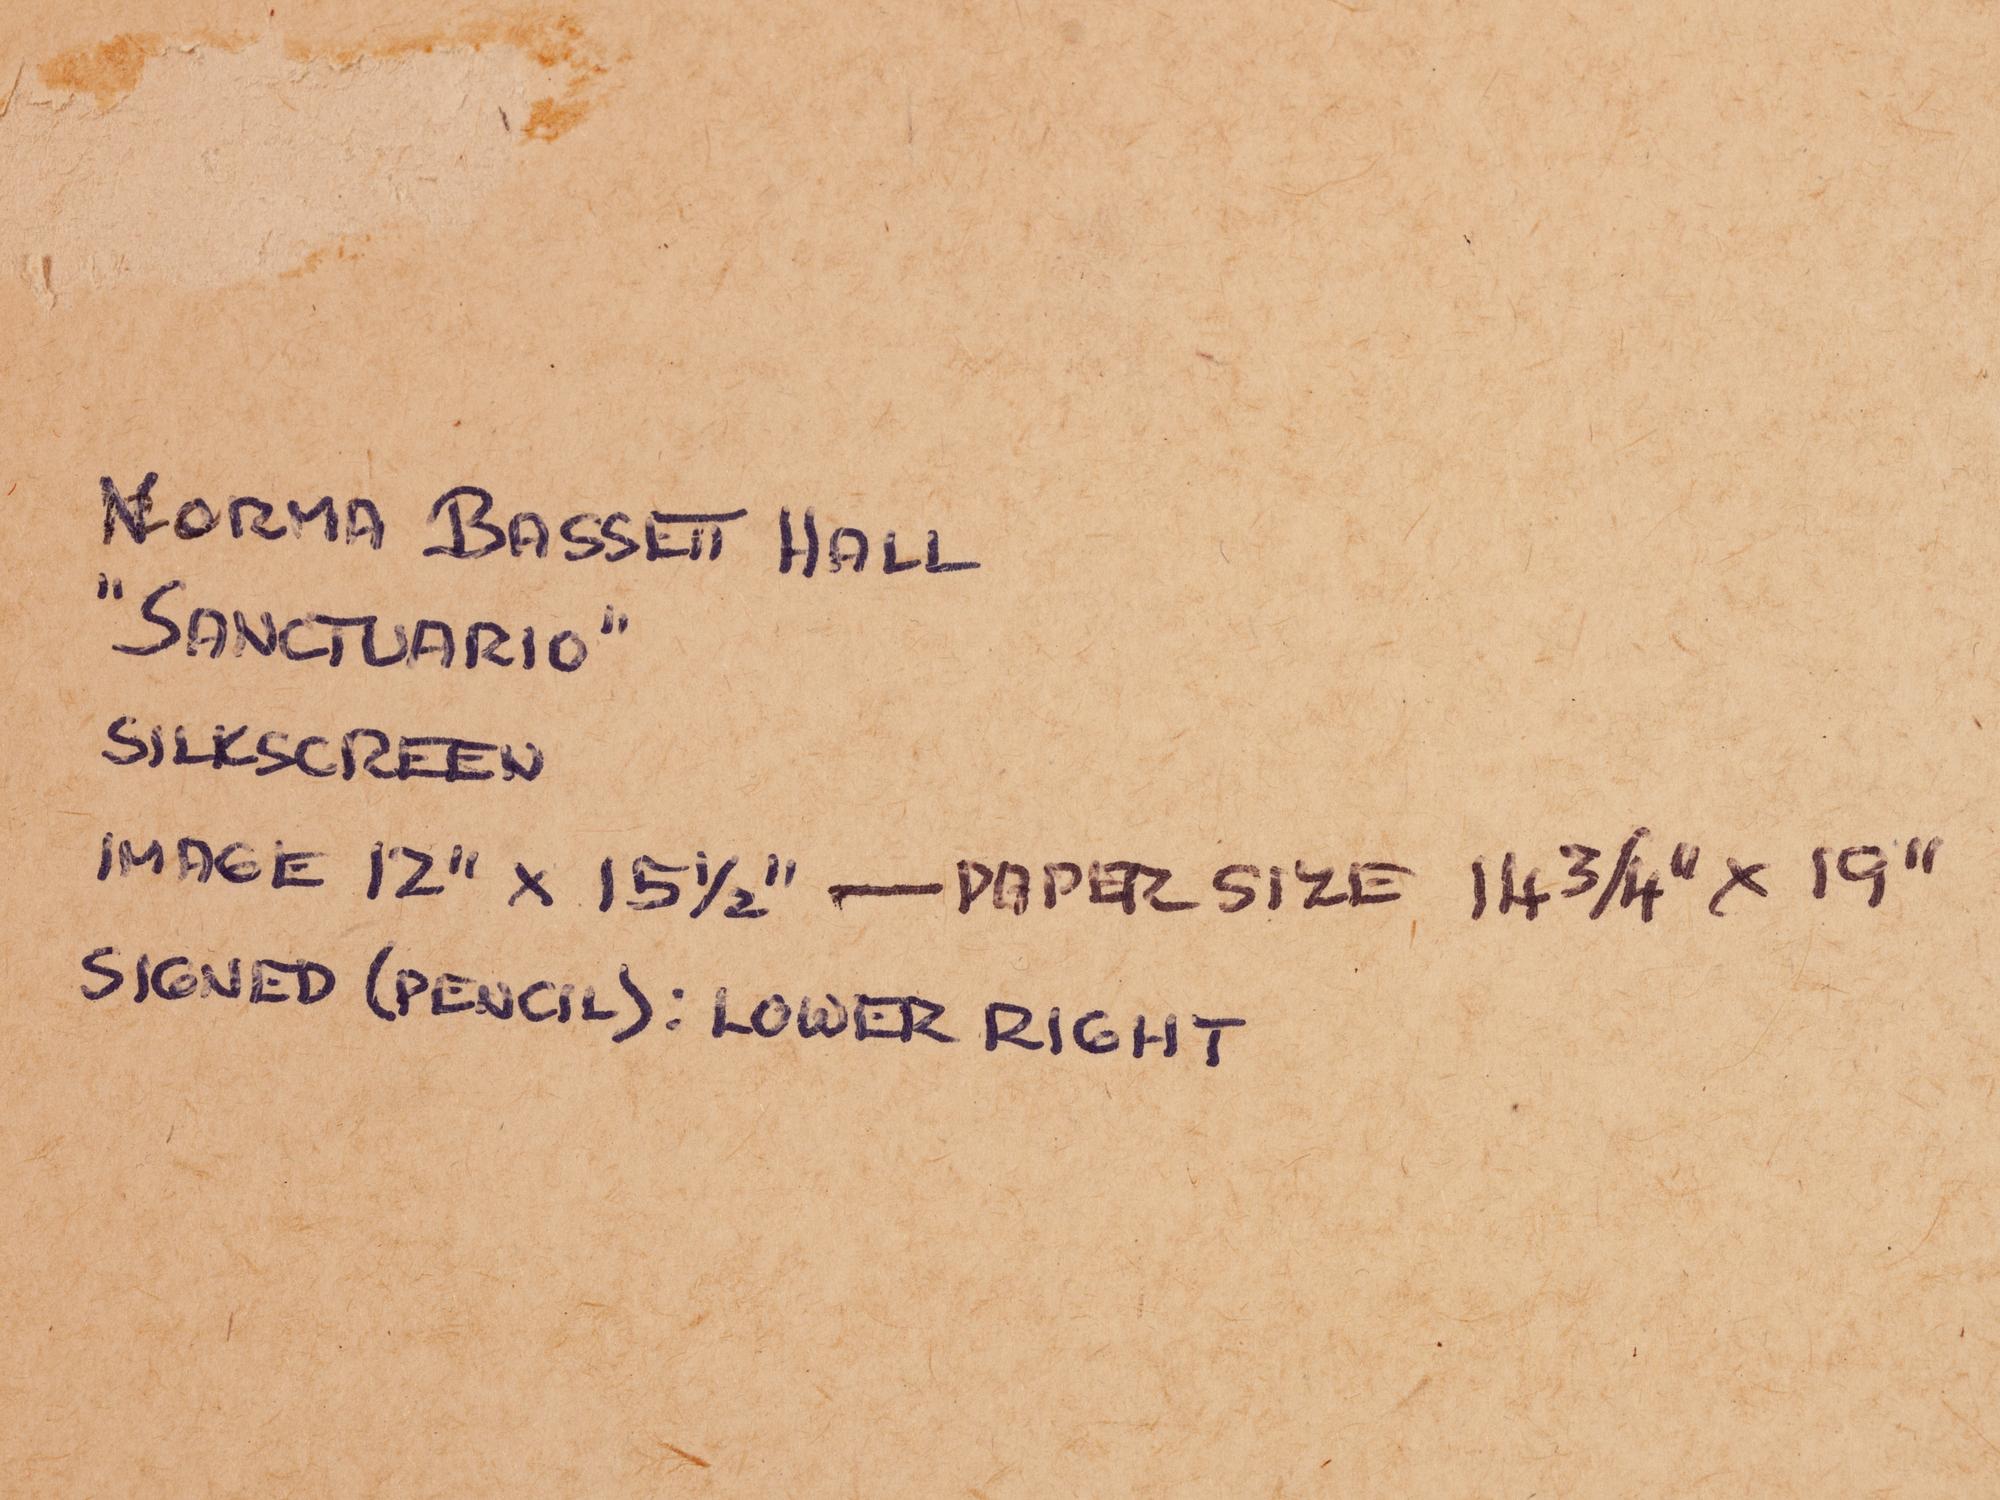 NORMA BASSETT HALL
"SANCTUARIO"
SILKSCREEN
IMAGE 12" X 15 1/2" — PAPER SIZE 14 3/4" X 19"
SIGNED (PENCIL): LOWER RIGHT